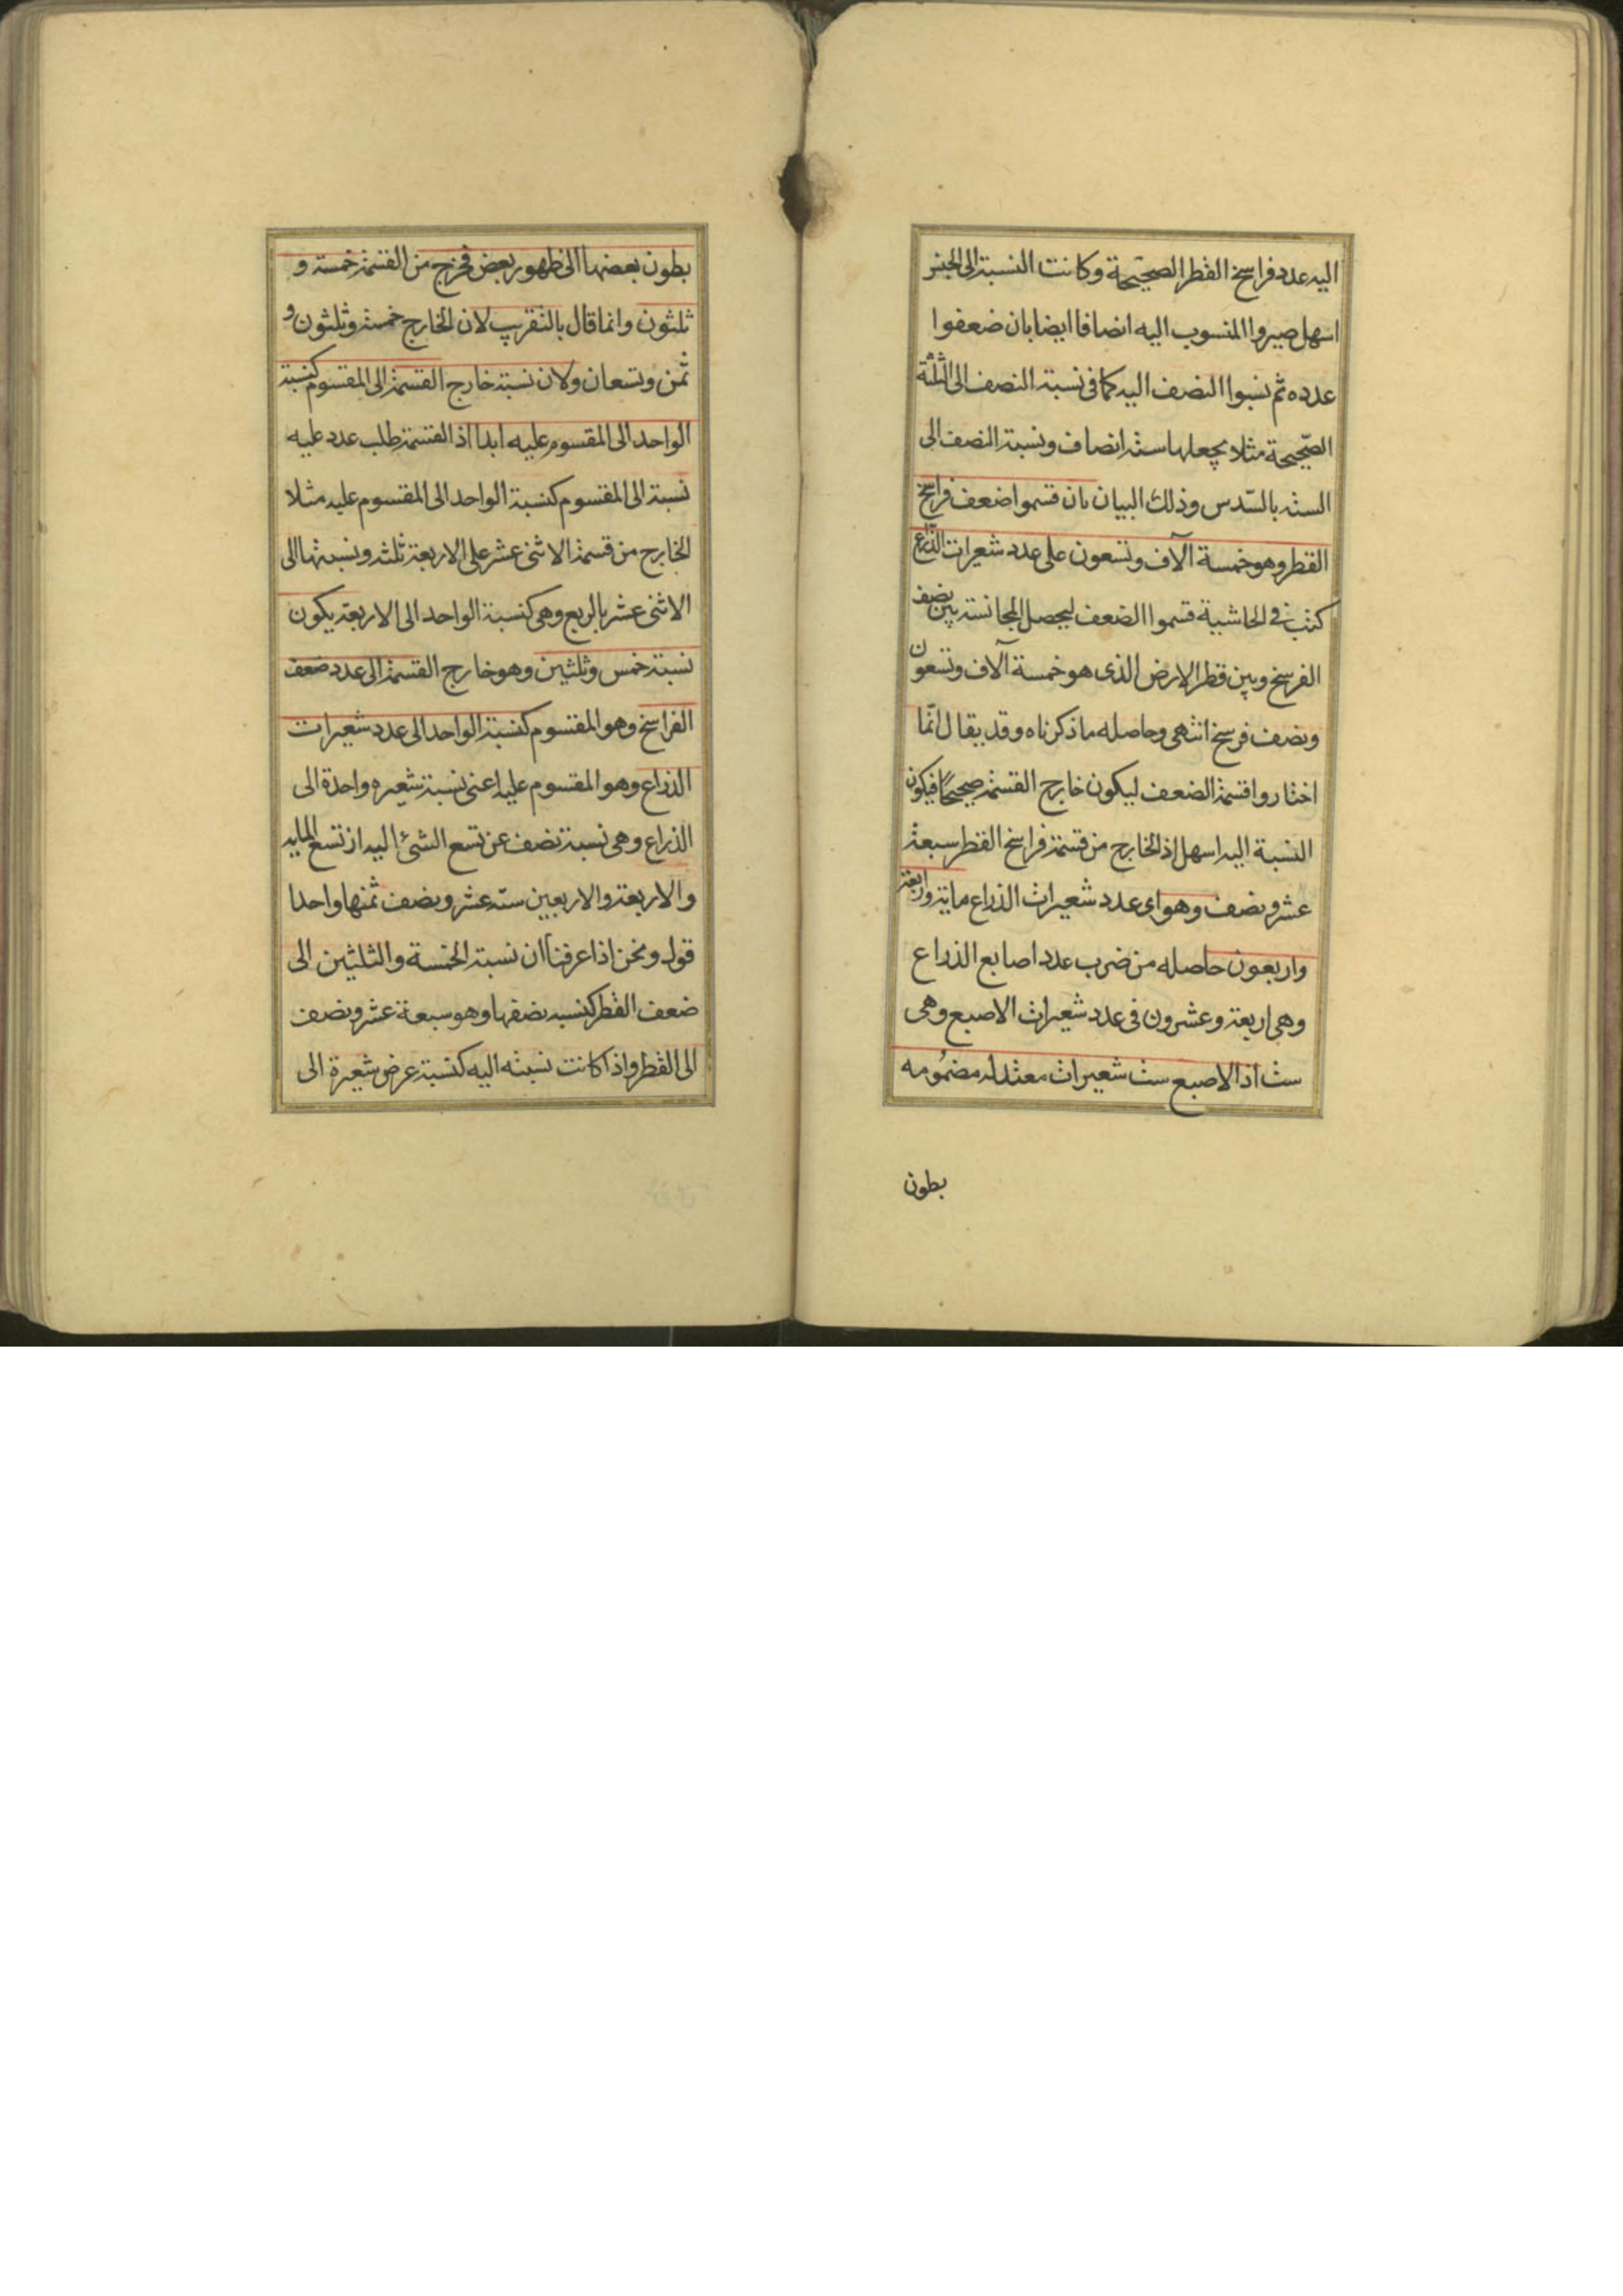 اليه عدد فراسخ القطر الصحيحة وكانت النسبة الى الجنس
اسهل صيروا المنسوب اليه انصافا ايضا بان ضعفوا
عدده ثم نسبوا النصف اليه كما فى نسبة النصف الى الثلثة
الصّحيحة مثلا يجعلها ستة انصاف ونسبة النصف الى
الستة بالسّدس وذلك البيان بان قسموا ضعف فراسخ
القطر وهو خمسة آلاف وتسعون على عدد شعيرات الذّراع
كتب فى الحاشية قسموا الضعف ليحصل المجانسة بين نصف
الفرسخ وبين قطر الارض الذى هو خمسة آلاف وتسعون
ونصف فرسخ انتهى وحاصله ما ذكرناه وقد يقال انّما
اختاروا قسمة الضعف ليكون خارج القسمة صحيحًا فيكون
النسبة اليه اسهل اذ الخارج من قسمة فراسخ القطر سبعة
عشر ونصف وهو اى عدد شعيرات الذراع ماية واربعة
واربعون حاصله من ضرب عدد اصابع الذراع
وهى اربعة وعشرون فى عدد شعيرات الاصبع وهى
ست اذ الاصبع ست شعيرات معتدله مضمُومه
بطون
بطون بعضها الى ظهور بعض فخرج من القسمة خمسة و
ثلثون وانما قال بالتقريب لان الخارج خمسة وثلثون و
ثمن وتسعان ولان نسبة خارج القسمة الى المقسوم كنسبة
الواحد الى المقسوم عليه ابدا اذ القسمة طلب عدد عليه
نسبة الى المقسوم كنسبة الواحد الى المقسوم عليه مثلا
الخارج من قسمة الاثنى عشر على الاربعة ثلثه ونسبتها الى
الاثنى عشر بالربع وهى كنسبة الواحد الى الاربعة يكون
نسبة خمس وثلثين وهو خارج القسمة الى عدد ضعف
الفراسخ وهو المقسوم كنسبة الواحد الى عدد شعيرات
الذراع وهو المقسوم عليه اعنى نسبة شعيره واحدة الى
الذراع وهى نسبة نصف ثمن تسع الشئ اليه اذ تسع المايه
والاربعة والاربعين ستة عشر ونصف ثمنها واحدا
قول ونحن اذا عرفنا ان نسبة الخمسة والثلثين الى
ضعف القطر كنسبه نصفها وهو سبعة عشر ونصف
الى القطر واذا كانت نسبته اليه كنسبة عرض شعيرة الى